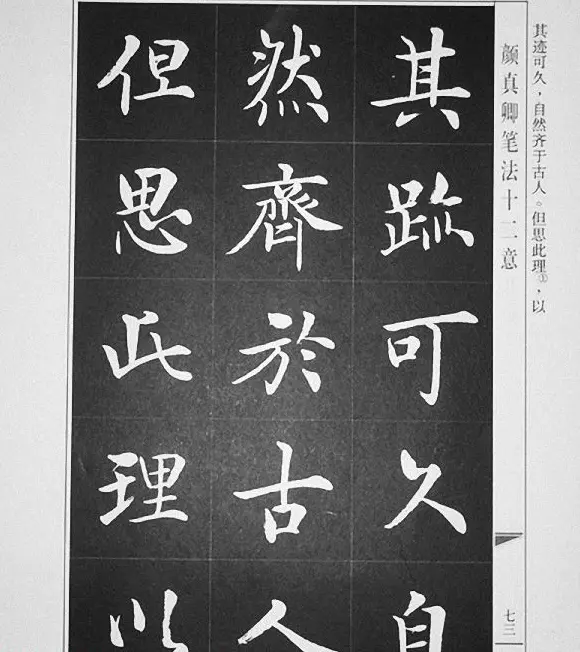 其迹可久，自然齐于古人。但思此理①，以
颜真卿笔法十二意
七三
其跡可久自
然齊於古人
但思此理以